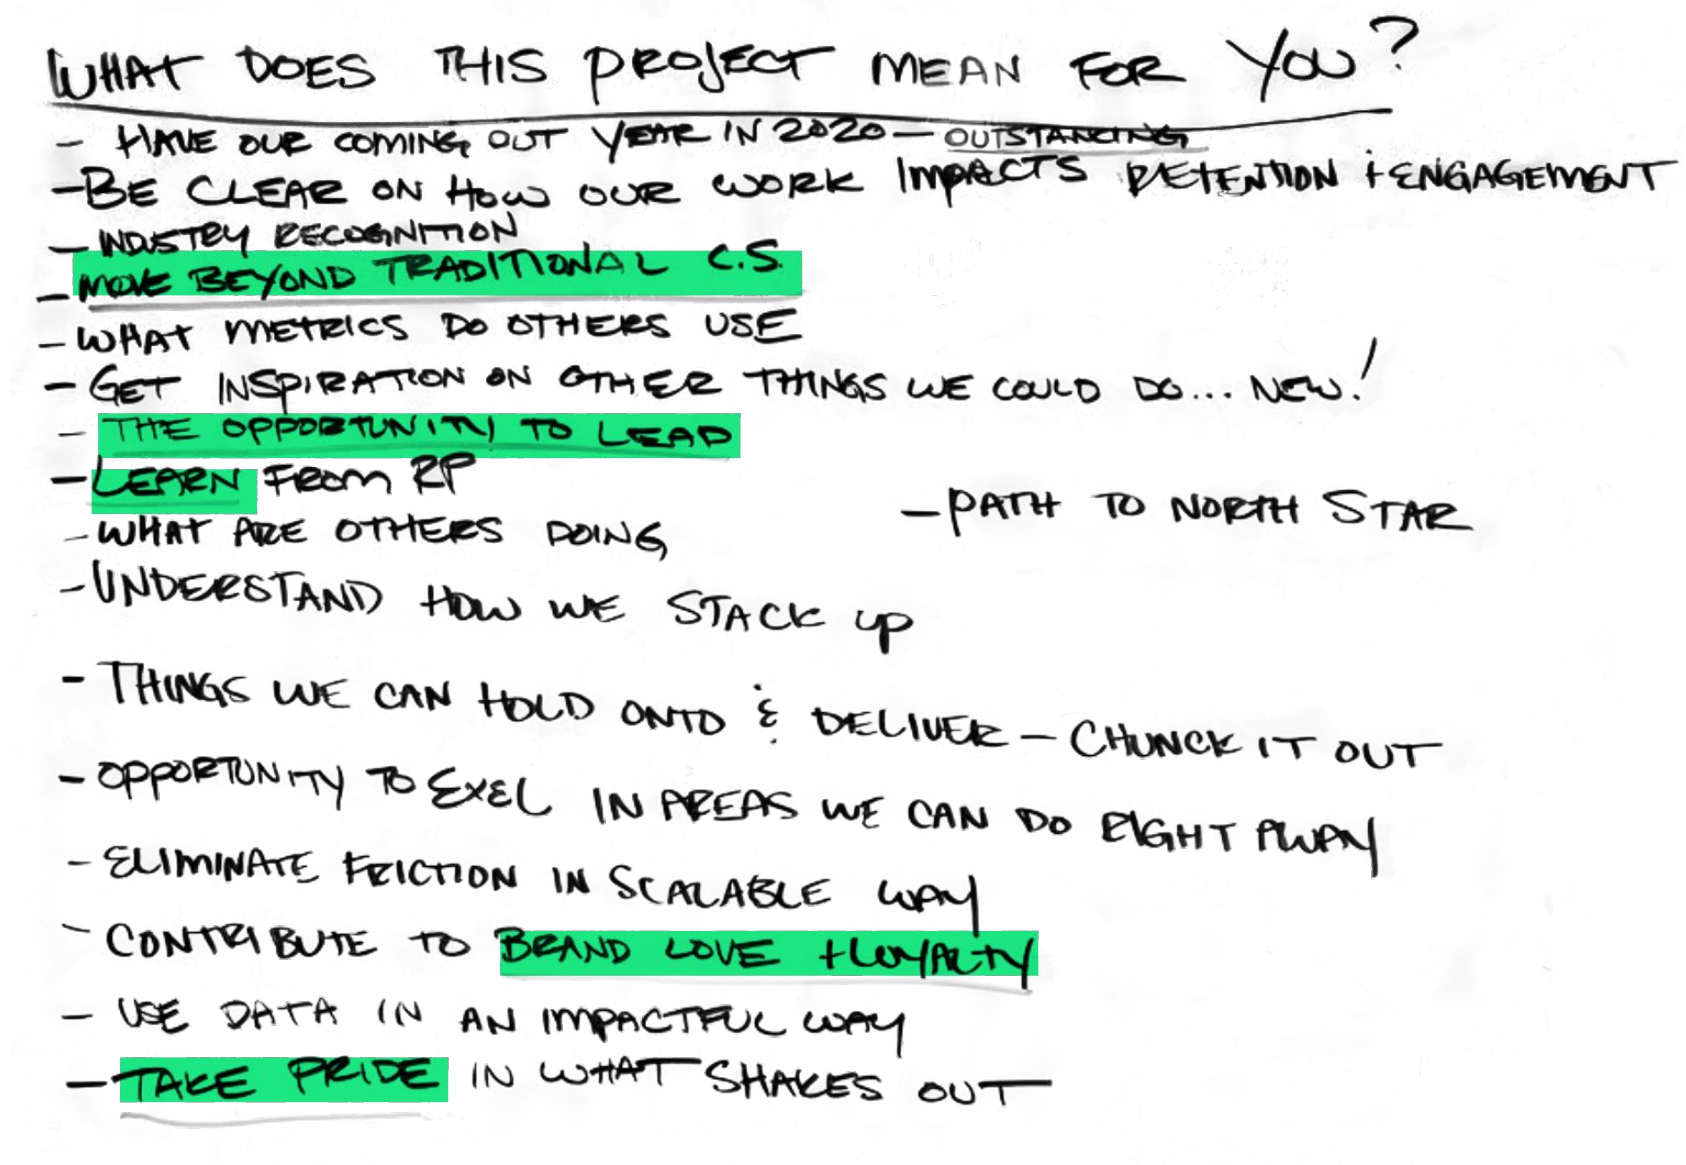 WHAT DOES THIS PROJECT MEAN FOR YOU?
- HAVE OUR COMING OUT YEAR IN 2020 - OUTSTANDING
- BE CLEAR ON HOW OUR WORK IMPACTS RETENTION + ENGAGEMENT
- INDUSTRY RECOGNITION
- MOVE BEYOND TRADITIONAL C.S.
- WHAT METRICS DO OTHERS USE
- GET INSPIRATION ON OTHER THINGS WE COULD DO... NEW!
- THE OPPORTUNITY TO LEAD
- LEARN FROM RP
- PATH TO NORTH STAR
- WHAT ARE OTHERS DOING
- UNDERSTAND HOW WE STACK UP
- THINGS WE CAN HOLD ONTO & DELIVER - CHUNCK IT OUT
- OPPORTUNITY TO EXEL IN AREAS WE CAN DO RIGHT AWAY
- ELIMINATE FRICTION IN SCALABLE WAY
- CONTRIBUTE TO BRAND LOVE + LOYALTY
- USE DATA IN AN IMPACTFUL WAY
- TAKE PRIDE IN WHAT SHAKES OUT